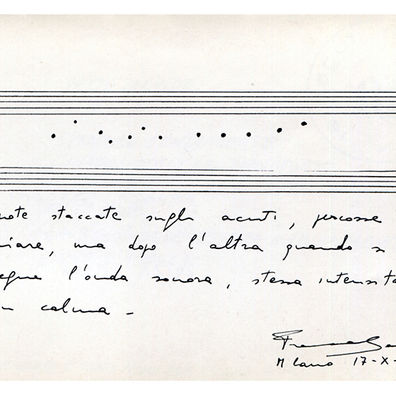 note staccate sugli acuti, percosse
iare, ma dopo l'altra quando s
egue l'onda sonora, stessa intensità
n calma -
Milano 17-X-